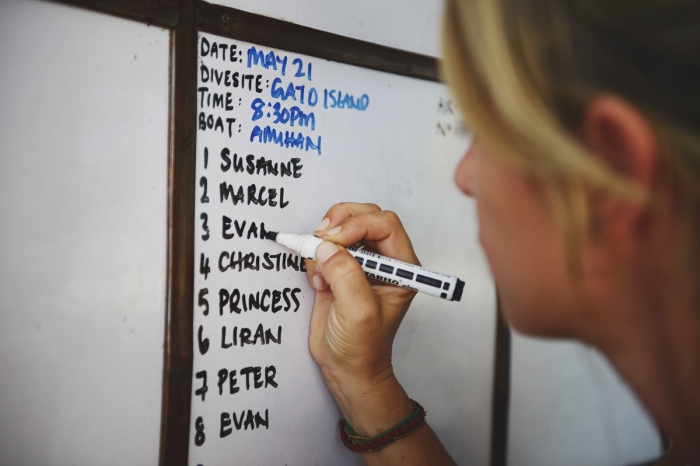 DATE: MAY 21
DIVESITE: GATO ISLAND
TIME: 8:30PM
BOAT:
1 SUSANNE
2 MARCEL
3 EVAN
4 CHRISTINE
5 PRINCESS
6 LIRAN
7 PETER
8 EVAN